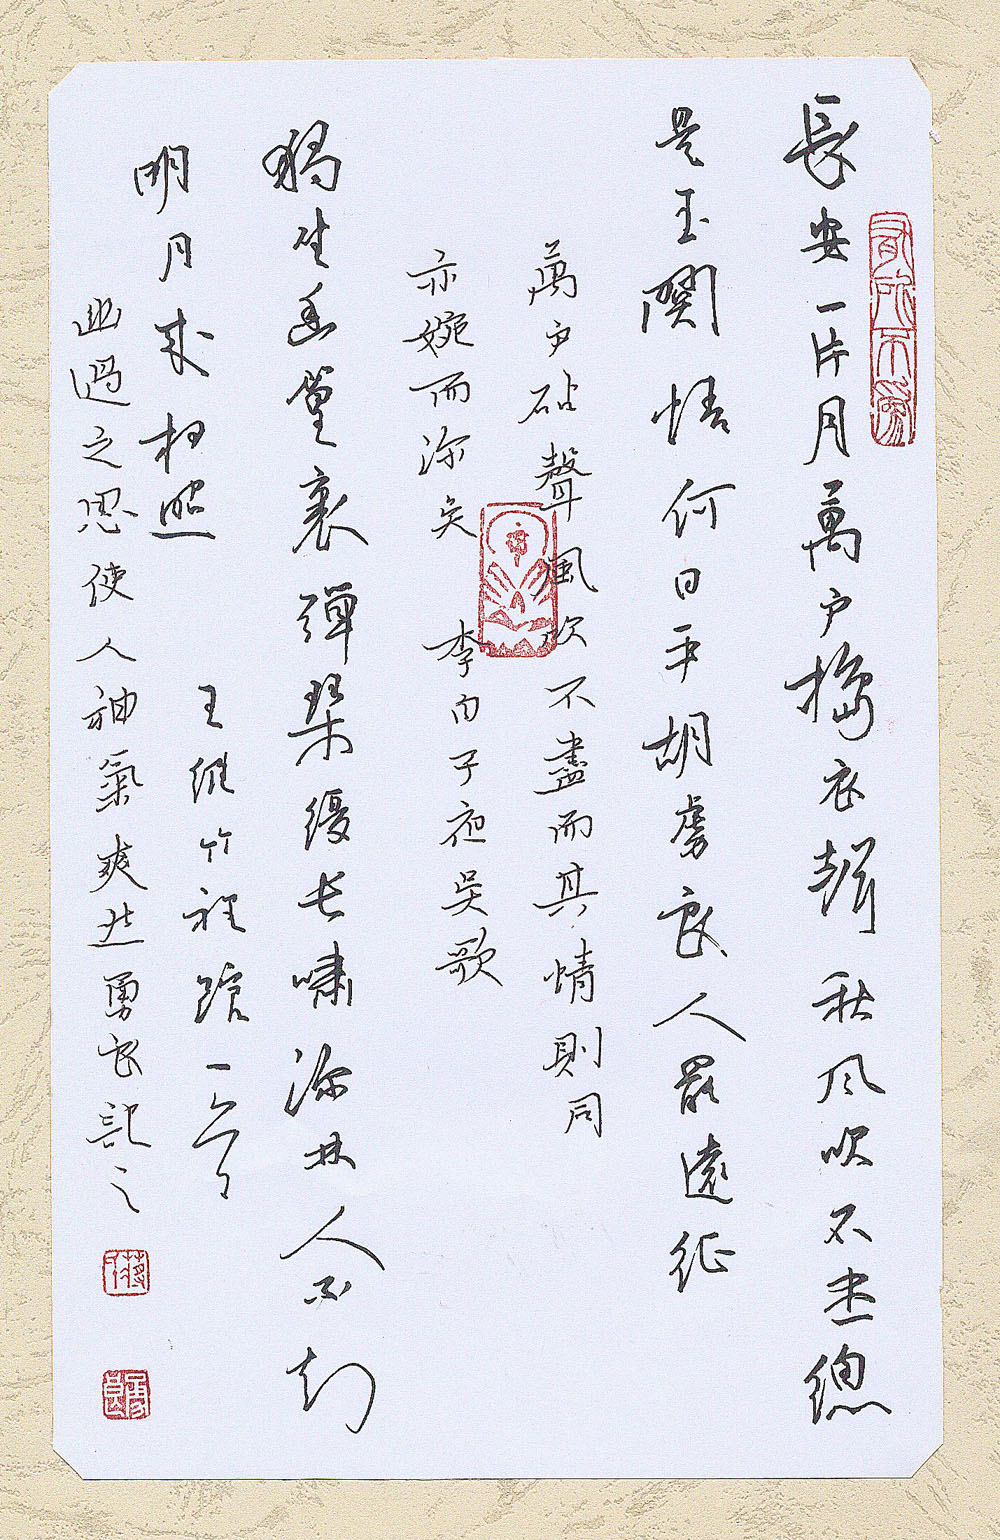 有所不為
長安一片月萬户搗衣聲秋风吹不尽總
是玉関情何日平胡虜良人罷遠征
萬户砧聲風吹不盡而其情則同
亦婉而深矣 李白子夜吴歌
獨坐幽篁裏彈琴復长嘯深林人不知
明月来相照
王維竹裡館一首
幽迥之思使人神氣爽然勇良記之
勇良